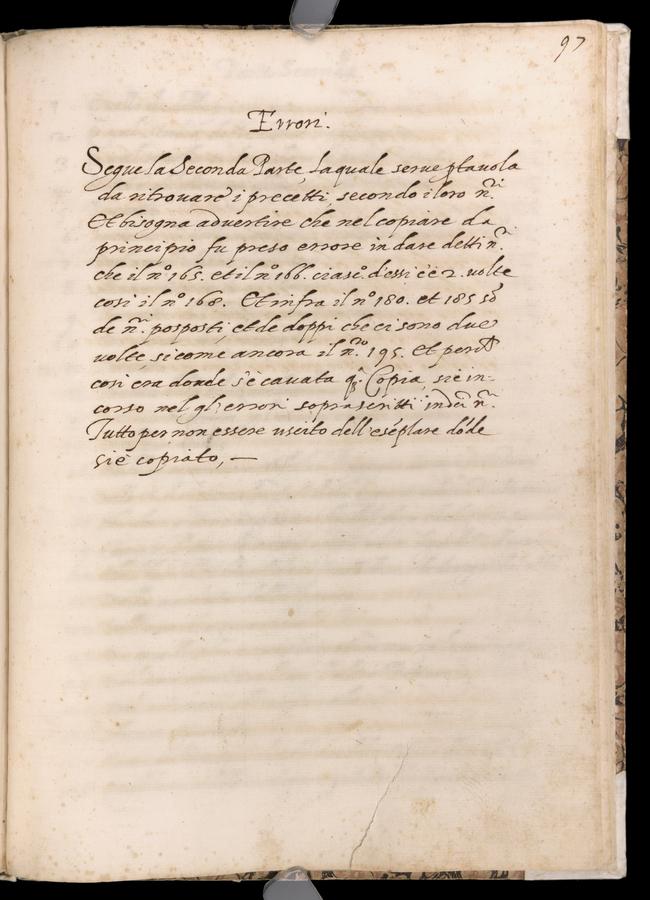 97
Errori.
Segue la Seconda Parte, laquale serve p tavola
da ritrovare i precetti, secondo i loro n.ri
Et bisogna advertire che nel copiare da
principio fu preso errore in dare detti n.ri
che il n.º 165. et il n.º 166. ciasc.º d'essi c'è 2. volte
cosi il n.º 168. Et infra il n.º 180. et 185 sõ
de n.ri posposti, et de doppi che ci sono due
volte, si come ancora il n.ro 195. Et
cosi era donde s'è cavata Copia, s'è in-
corso nel gl'errori soprascritti in n.ri
Tutto per non essere uscito dell'esẽplare dõde
si è copiato, —